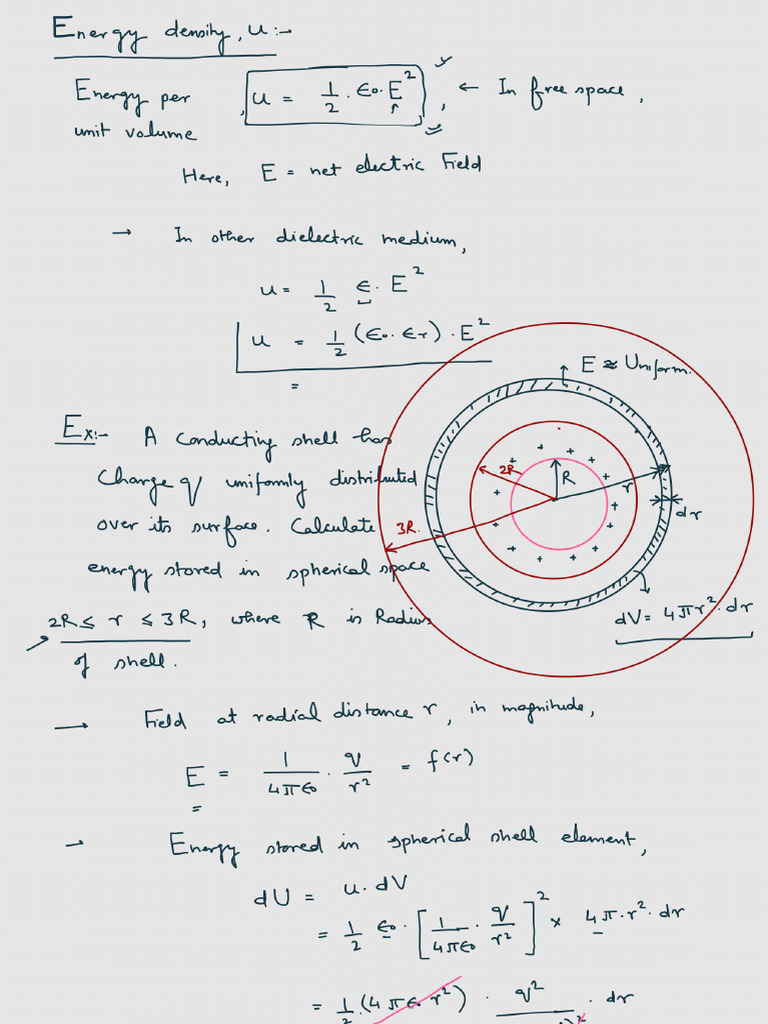 Energy density, u :-
Energy per unit volume, u = 1/2 · ϵ₀ · E² , ← In free space,
Here, E = net electric Field
→ In other dielectric medium,
u = 1/2 ϵ · E²
u = 1/2 (ϵ₀ · ϵr) · E²
=
E ≈ Uniform.
Ex:- A conducting shell has
Charge q uniformly distributed
over its surface. Calculate
energy stored in spherical space
2R ≤ r ≤ 3R, where R is Radius
of shell.
2R
R
r
dr
3R.
dV = 4πr² · dr
→ Field at radial distance r, in magnitude,
E = 1/4πϵ₀ · q/r² = f(r)
=
→ Energy stored in spherical shell element,
dU = u · dV
= 1/2 ϵ₀ · [1/4πϵ₀ · q/r²]² × 4π · r² · dr
= 1/2 · (4πϵ₀ r²) · q² · dr